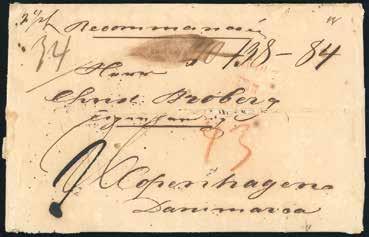 Recommandé
34 198-84
Herr
Christ. Broberg
Eigenhändig
93
Copenhagen
Danimarca